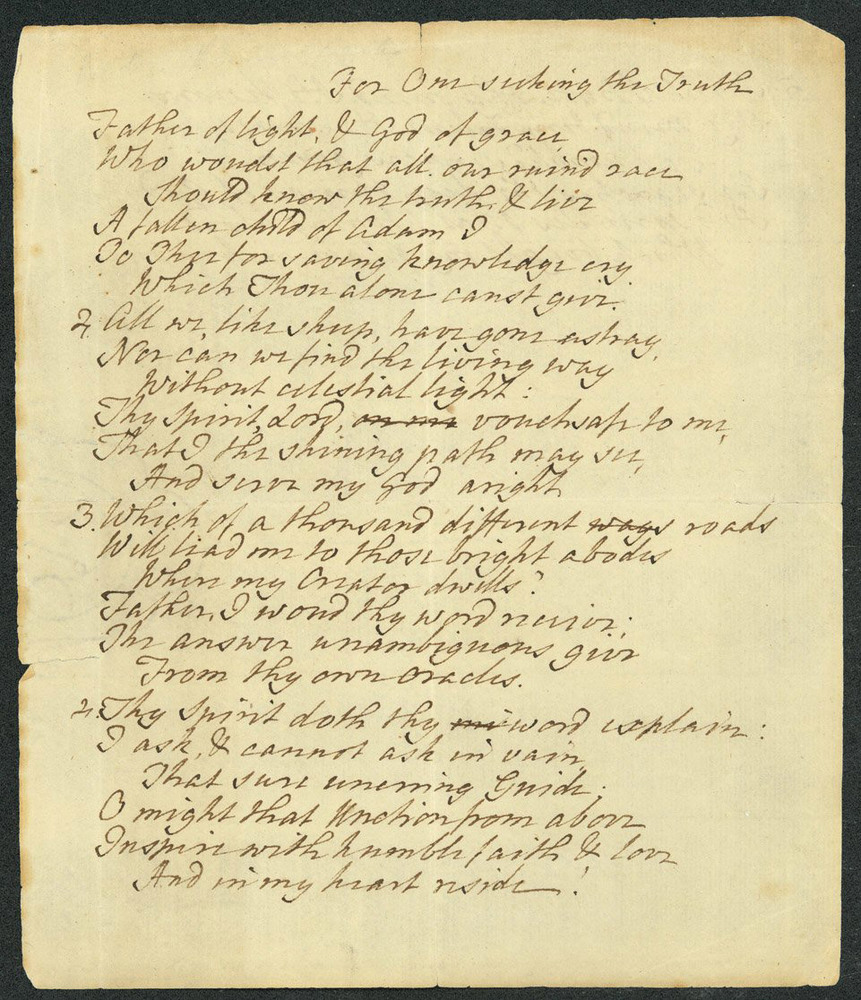 For One seeking the Truth
Father of light, & God of grace,
Who woudst that all our ruin'd race
Should know the truth, & live
A fallen child of Adam I
To Thee for saving knowledge cry
Which Thou alone canst give.
2. All we, like sheep, have gone astray,
Nor can we find the living way
Without celestial light:
Thy Spirit, Lord, on me vouchsafe to me,
That I the shining path may see,
And serve my God aright
3. Which of a thousand different ways roads
Will lead me to those bright abodes
Where my Creator dwells?
Father, I woud thy word receive:
The answer unambiguous give
From thy own oracles.
4. Thy Spirit doth thy word explain:
I ask, & cannot ask in vain,
That sure unerring Guide;
O might that Unction from above
Inspire with humble faith & love
And in my heart reside!